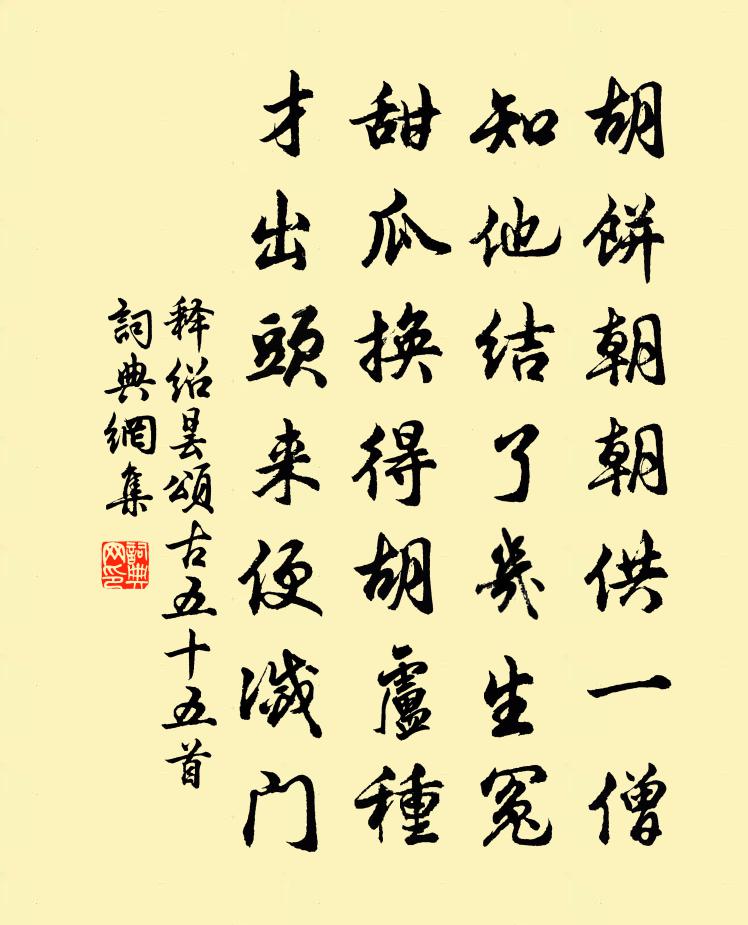 胡餅朝朝供一僧
知他结了幾生冤
甜瓜換得胡盧種
才出頭来便滅门
释绍昙頌古五十五首
詞典網集
詞典网印